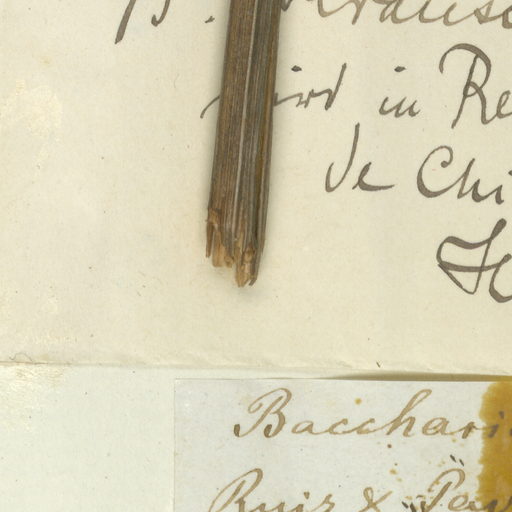 wird in Re
de Chi
Bacchari
Ruiz & Pav